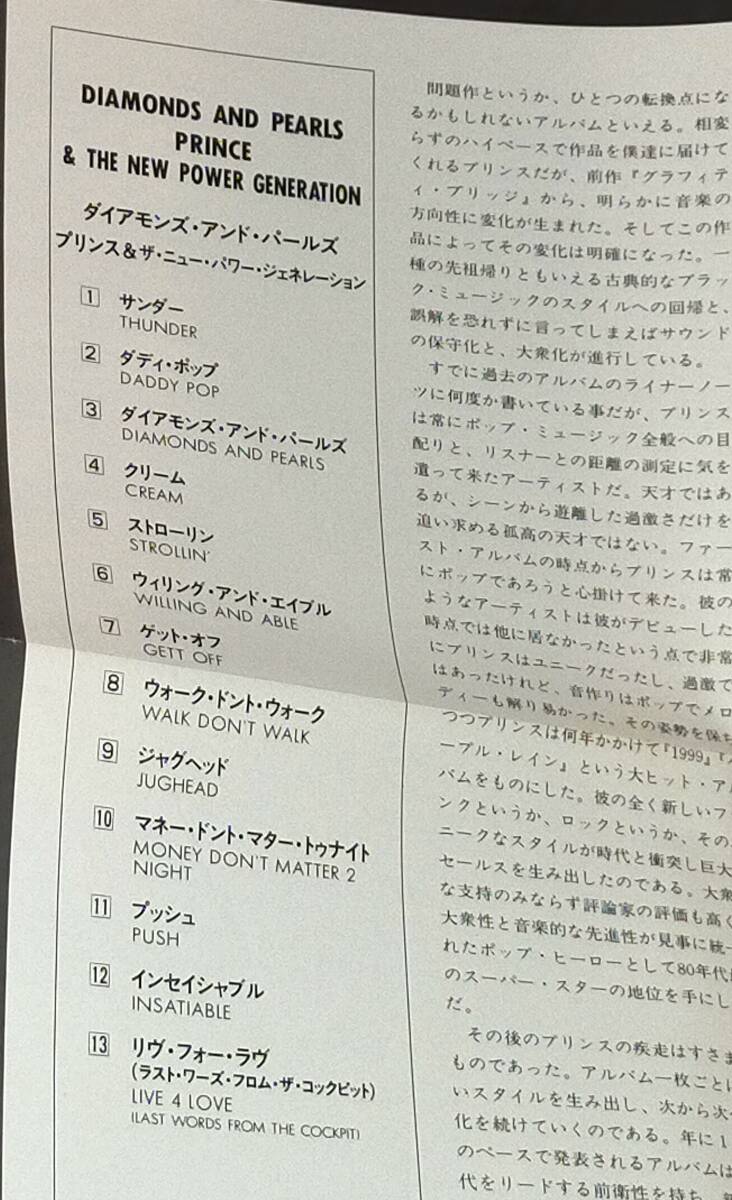 DIAMONDS AND PEARLS
PRINCE
& THE NEW POWER GENERATION
ダイアモンズ・アンド・パールズ
プリンス&ザ・ニュー・パワー・ジェネレーション
1 サンダー
THUNDER
2 ダディ・ポップ
DADDY POP
3 ダイアモンズ・アンド・パールズ
DIAMONDS AND PEARLS
4 クリーム
CREAM
5 ストローリン
STROLLIN'
6 ウィリング・アンド・エイブル
WILLING AND ABLE
7 ゲット・オフ
GETT OFF
8 ウォーク・ドント・ウォーク
WALK DON'T WALK
9 ジャグヘッド
JUGHEAD
10 マネー・ドント・マター・トゥナイト
MONEY DON'T MATTER 2
NIGHT
11 プッシュ
PUSH
12 インセイシャブル
INSATIABLE
13 リヴ・フォー・ラヴ
(ラスト・ワーズ・フロム・ザ・コックピット)
LIVE 4 LOVE
(LAST WORDS FROM THE COCKPIT)
問題作というか、ひとつの転換点にな
るかもしれないアルバムといえる。相変
らずのハイペースで作品を僕達に届けて
くれるプリンスだが、前作『グラフィテ
ィ・ブリッジ』から、明らかに音楽の
方向性に変化が生まれた。そしてこの作
品によってその変化は明確になった。一
種の先祖帰りともいえる古典的なブラッ
ク・ミュージックのスタイルへの回帰と、
誤解を恐れずに言ってしまえばサウンド
の保守化と、大衆化が進行している。
すでに過去のアルバムのライナーノー
ツに何度か書いている事だが、プリンス
は常にポップ・ミュージック全般への目
配りと、リスナーとの距離の測定に気を
遣って来たアーティストだ。天才ではあ
るが、シーンから遊離した過激さだけを
追い求める孤高の天才ではない。ファー
スト・アルバムの時点からプリンスは常
にポップであろうと心掛けて来た。彼の
ようなアーティストは彼がデビューした
時点では他に居なかったという点で非常
にプリンスはユニークだったし、過激で
はあったけれど、音作りはポップでメロ
ディーも解り易かった。その姿勢を保ち
つつプリンスは何年かかけて『1999』『パ
ープル・レイン』という大ヒット・アル
バムをものにした。彼の全く新しいファ
ンクというか、ロックというか、その
ニークなスタイルが時代と衝突し巨大
セールスを生み出したのである。大衆
な支持のみならず評論家の評価も高く
大衆性と音楽的な先進性が見事に統一
れたポップ・ヒーローとして80年代
のスーパー・スターの地位を手にし
だ。
その後のプリンスの疾走はすさま
ものであった。アルバム一枚ごとに
いスタイルを生み出し、次から次へ
化を続けていくのである。年に1
のペースで発表されるアルバムは
代をリードする前衛性を持ち、